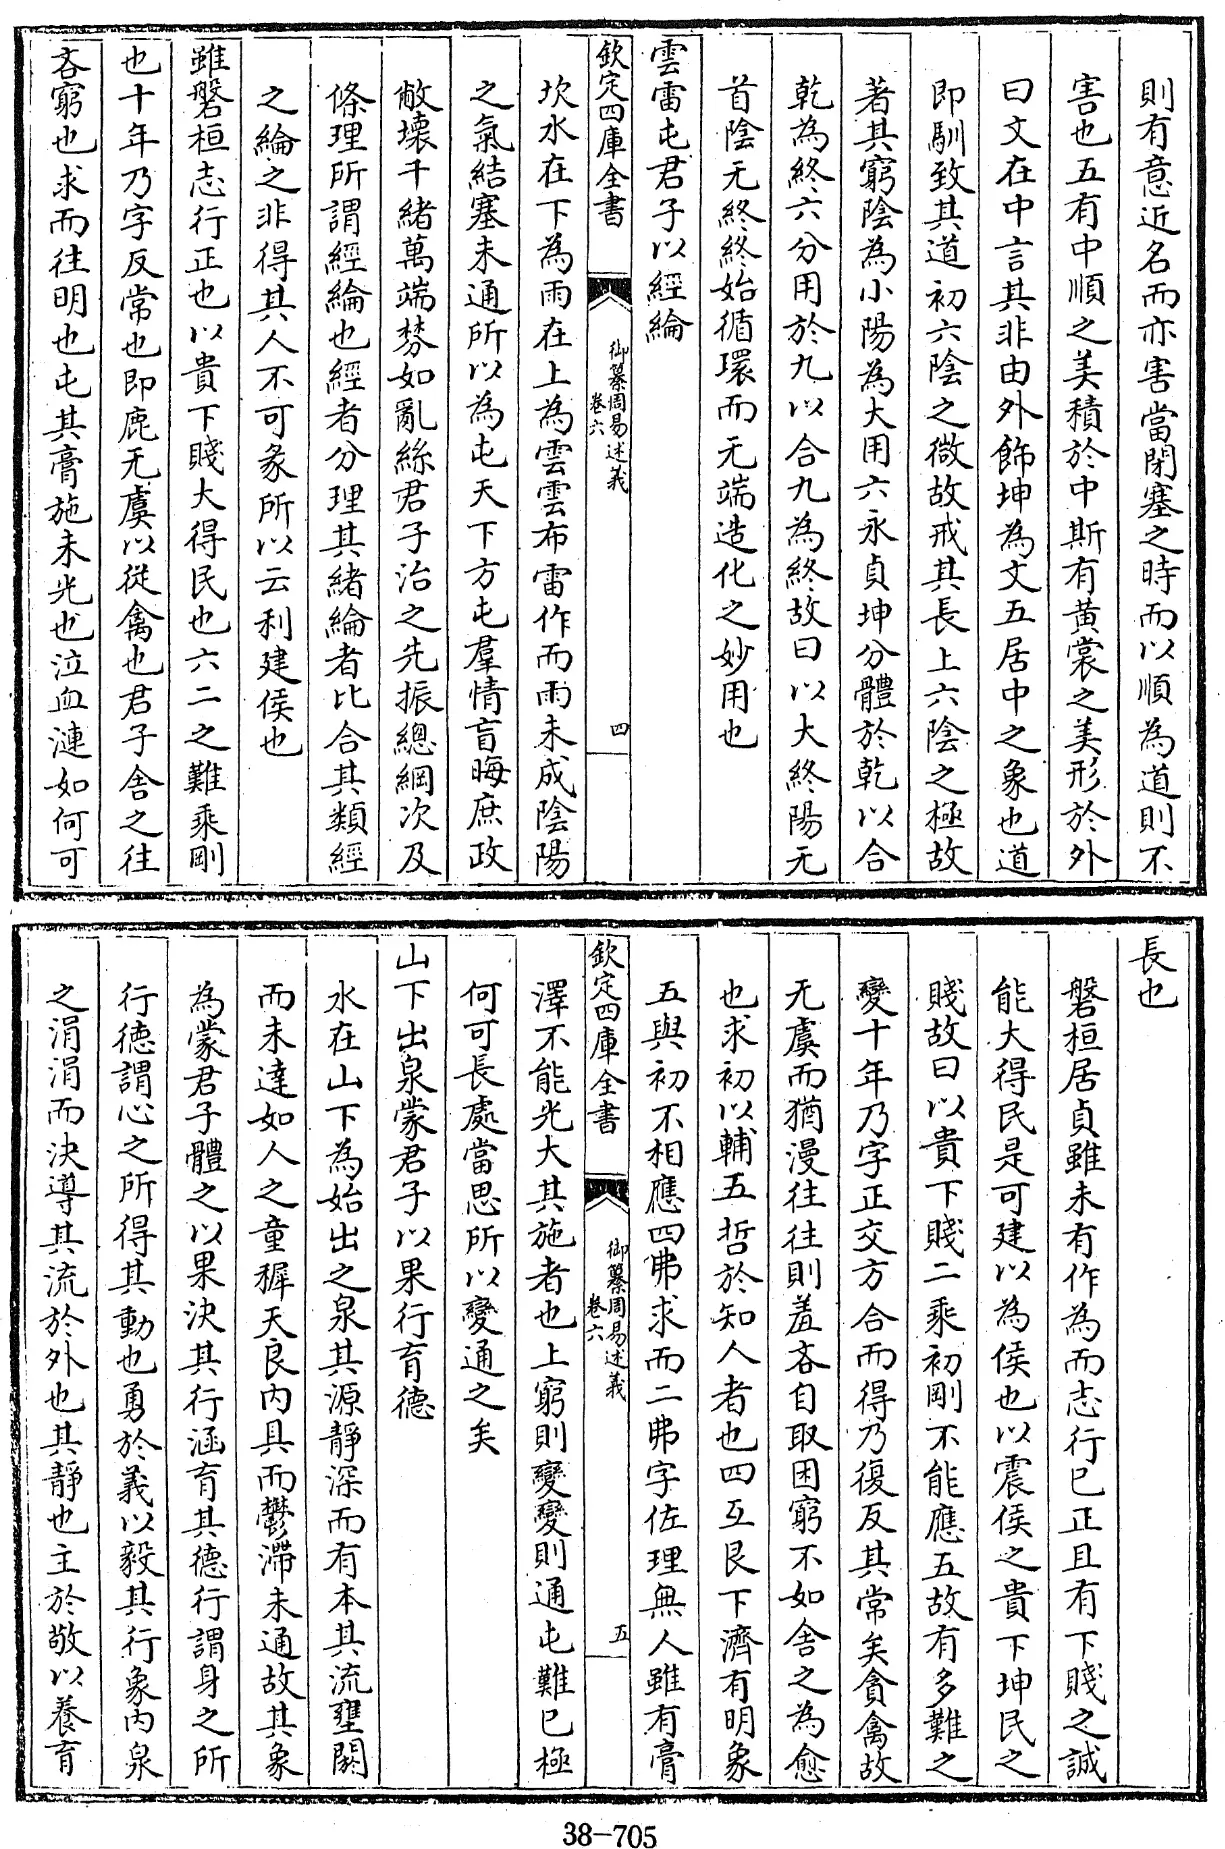 則有意近名而亦害當閉塞之時而以順為道則不
害也五有中順之美積於中斯有黄裳之美形於外
曰文在中言其非由外飾坤為文五居中之象也道
即馴致其道初六陰之微故戒其長上六陰之極故
著其窮陰為小陽為大用六永貞坤分體於乾以合
乾為終六分用於九以合九為終故曰以大終陽无
首陰无終終始循環而无端造化之妙用也
雲雷屯君子以經綸
欽定四庫全書
御纂周易述義
卷六
四
坎水在下為雨在上為雲雲布雷作而雨未成陰陽
之氣結塞未通所以為屯天下方屯羣情盲晦庶政
敝壞千緒萬端棼如亂絲君子治之先振總綱次及
條理所謂經綸也經者分理其緒綸者比合其類經
之綸之非得其人不可彖所以云利建侯也
雖磐桓志行正也以貴下賤大得民也六二之難乘剛
也十年乃字反常也即鹿无虞以從禽也君子舍之往
吝窮也求而往明也屯其膏施未光也泣血漣如何可
長也
磐桓居貞雖未有作為而志行已正且有下賤之誠
能大得民是可建以為侯也以震侯之貴下坤民之
賤故曰以貴下賤二乘初剛不能應五故有多難之
變十年乃字正交方合而得乃復反其常矣貪禽故
无虞而猶漫往往則羞吝自取困窮不如舍之為愈
也求初以輔五哲於知人者也四互艮下濟有明象
五與初不相應四弗求而二弗字佐理無人雖有膏
欽定四庫全書
御纂周易述義
卷六
五
澤不能光大其施者也上窮則變變則通屯難已極
何可長處當思所以變通之矣
山下出泉蒙君子以果行育德
水在山下為始出之泉其源靜深而有本其流壅閼
而未達如人之童穉天良内具而鬱滯未通故其象
為蒙君子體之以果決其行涵育其德行謂身之所
行德謂心之所得其動也勇於義以毅其行象内泉
之涓涓而決導其流於外也其靜也主於敬以養育
38-705